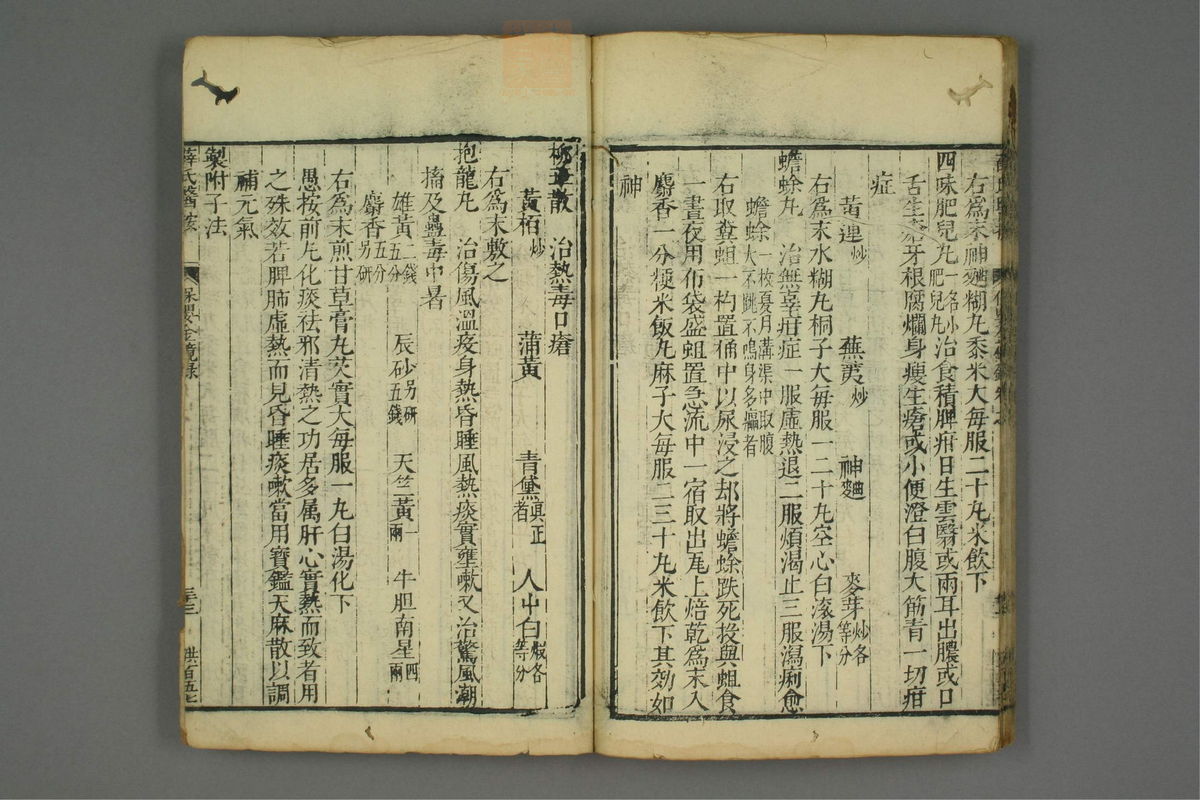 右爲末神麯糊丸黍米大每服二十丸米飲下
四味肥兒丸一名小肥兒丸治食積脾疳日生雲翳或兩耳出膿或口
舌生瘡牙根腐爛身瘦生瘡或小便澄白腹大筋青一切疳
症
黃連炒 蕪荑炒 神麯 麥芽炒各等分
右爲末水糊丸桐子大每服一二十丸空心白滚湯下
蟾蜍丸 治無辜疳症一服虛熱退二服煩渴止三服瀉痢愈
蟾蜍一枚夏月溝渠中取腹大不跳不鳴身多癩者
右取糞蛆一杓置桶中以尿浸之却將蟾蜍跌死投與蛆食
一晝夜用布袋盛蛆置急流中一宿取出瓦上焙乾爲末入
麝香一分粳米飯丸麻子大每服二三十丸米飲下其効如
神
柳華散 治熱毒口瘡
黃栢炒 蒲黃 青黛眞正者 人中白煆各等分
右爲末敷之
抱龍丸 治傷風溫疫身熱昏睡風熱痰實壅嗽又治驚風潮
搐及蠱毒中暑
雄黃二錢五分 辰砂另研五錢 天竺黃一兩 牛胆南星四兩
麝香五分另研
右爲末煎甘草膏丸芡實大每服一丸白湯化下
愚按前丸化痰祛邪清熱之功居多属肝心實熱而致者用
之殊效若脾肺虛熱而見昏睡痰嗽當用寶鑑天麻散以調
補元氣
製附子法
薛氏醫按 保嬰金鏡錄 三三 洪百五七